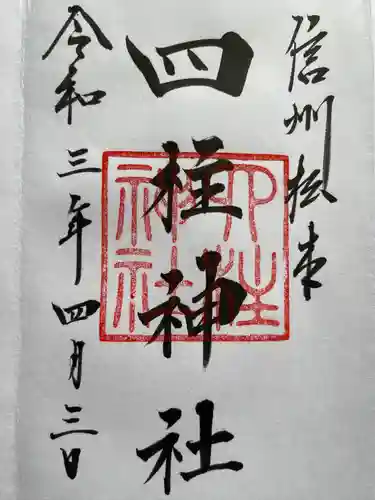 信州松本
四柱神社
四柱
神社
令和三年四月三日